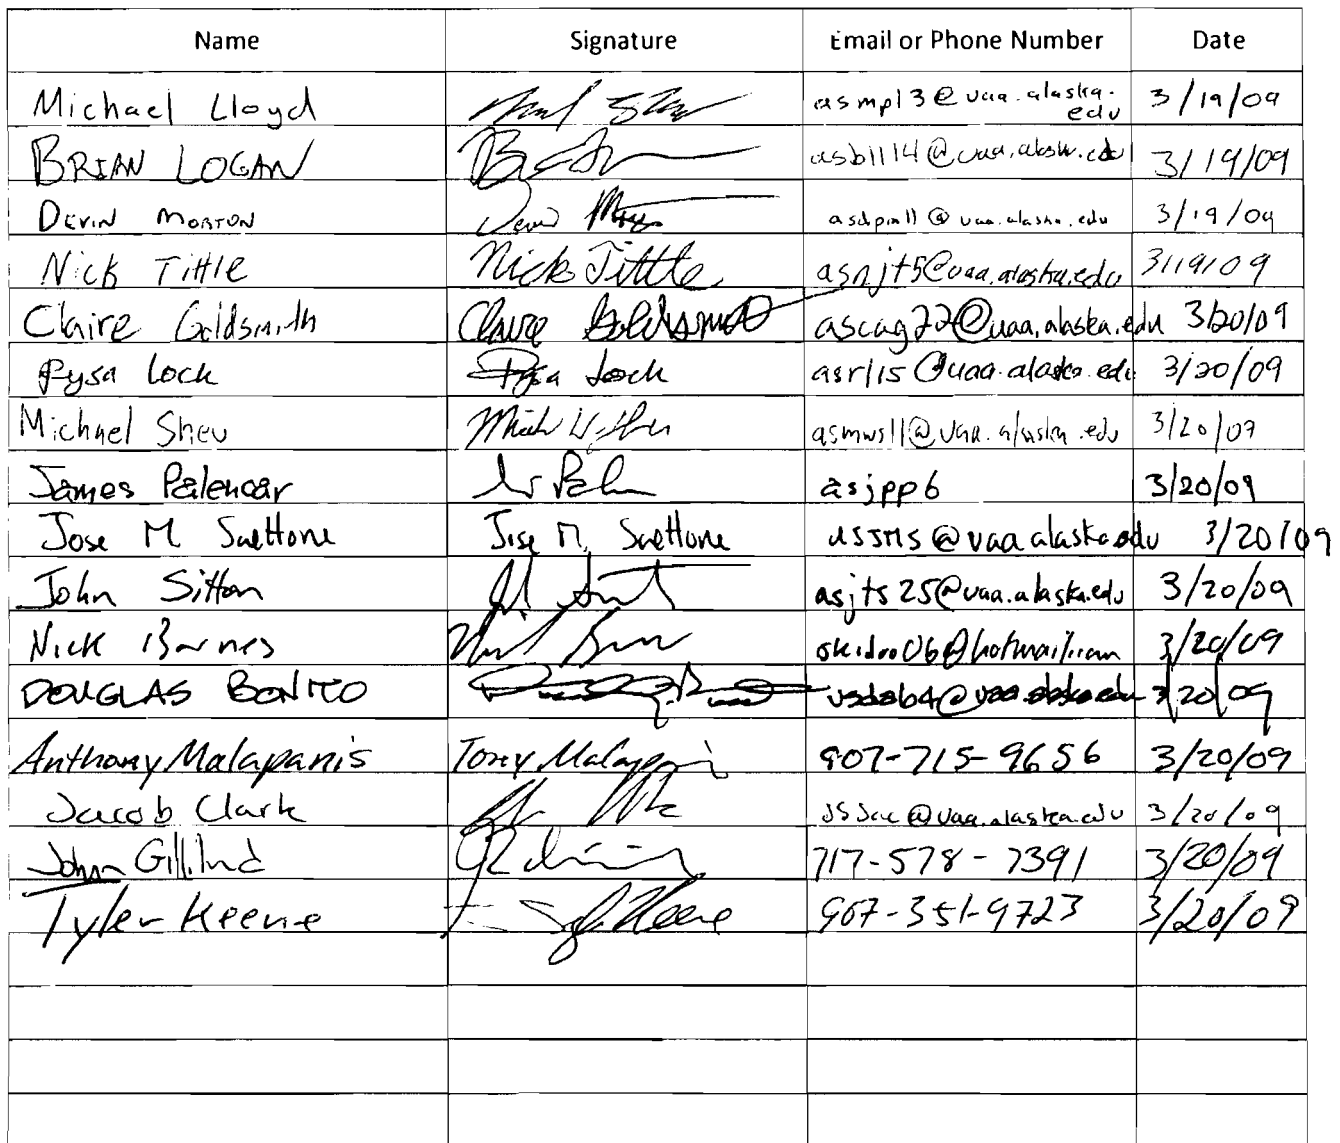 Name Signature Email or Phone Number Date
Michael Lloyd asmpl3@uaa.alaska.edu 3/19/09
BRIAN LOGAN @uaa.alaska.edu 3/19/09
DEVIN MORTON @uaa.alaska.edu 3/19/09
Nick Tittle Nick Tittle asnjt5@uaa.alaska.edu 3/19/09
Claire Goldsmith Claire Goldsmith ascag22@uaa.alaska.edu 3/20/09
Rysa Lock Rysa Lock asrl15@uaa.alaska.edu 3/20/09
Michael Shen asmws11@uaa.alaska.edu 3/20/09
James Palencar asjpp6 3/20/09
Jose M Suettone Jose M. Suettone asjms@uaa.alaska.edu 3/20/09
John Sitton asjts25@uaa.alaska.edu 3/20/09
Nick Barnes skidoo06@hotmail.com 3/20/09
DOUGLAS BONITO 3/20/09
Anthony Malapanis Tony 907-715-9656 3/20/09
Jacob Clark @uaa.alaska.edu 3/20/09
John Gilliland 717-578-7391 3/20/09
Tyler Keene Keene 907-351-9723 3/20/09